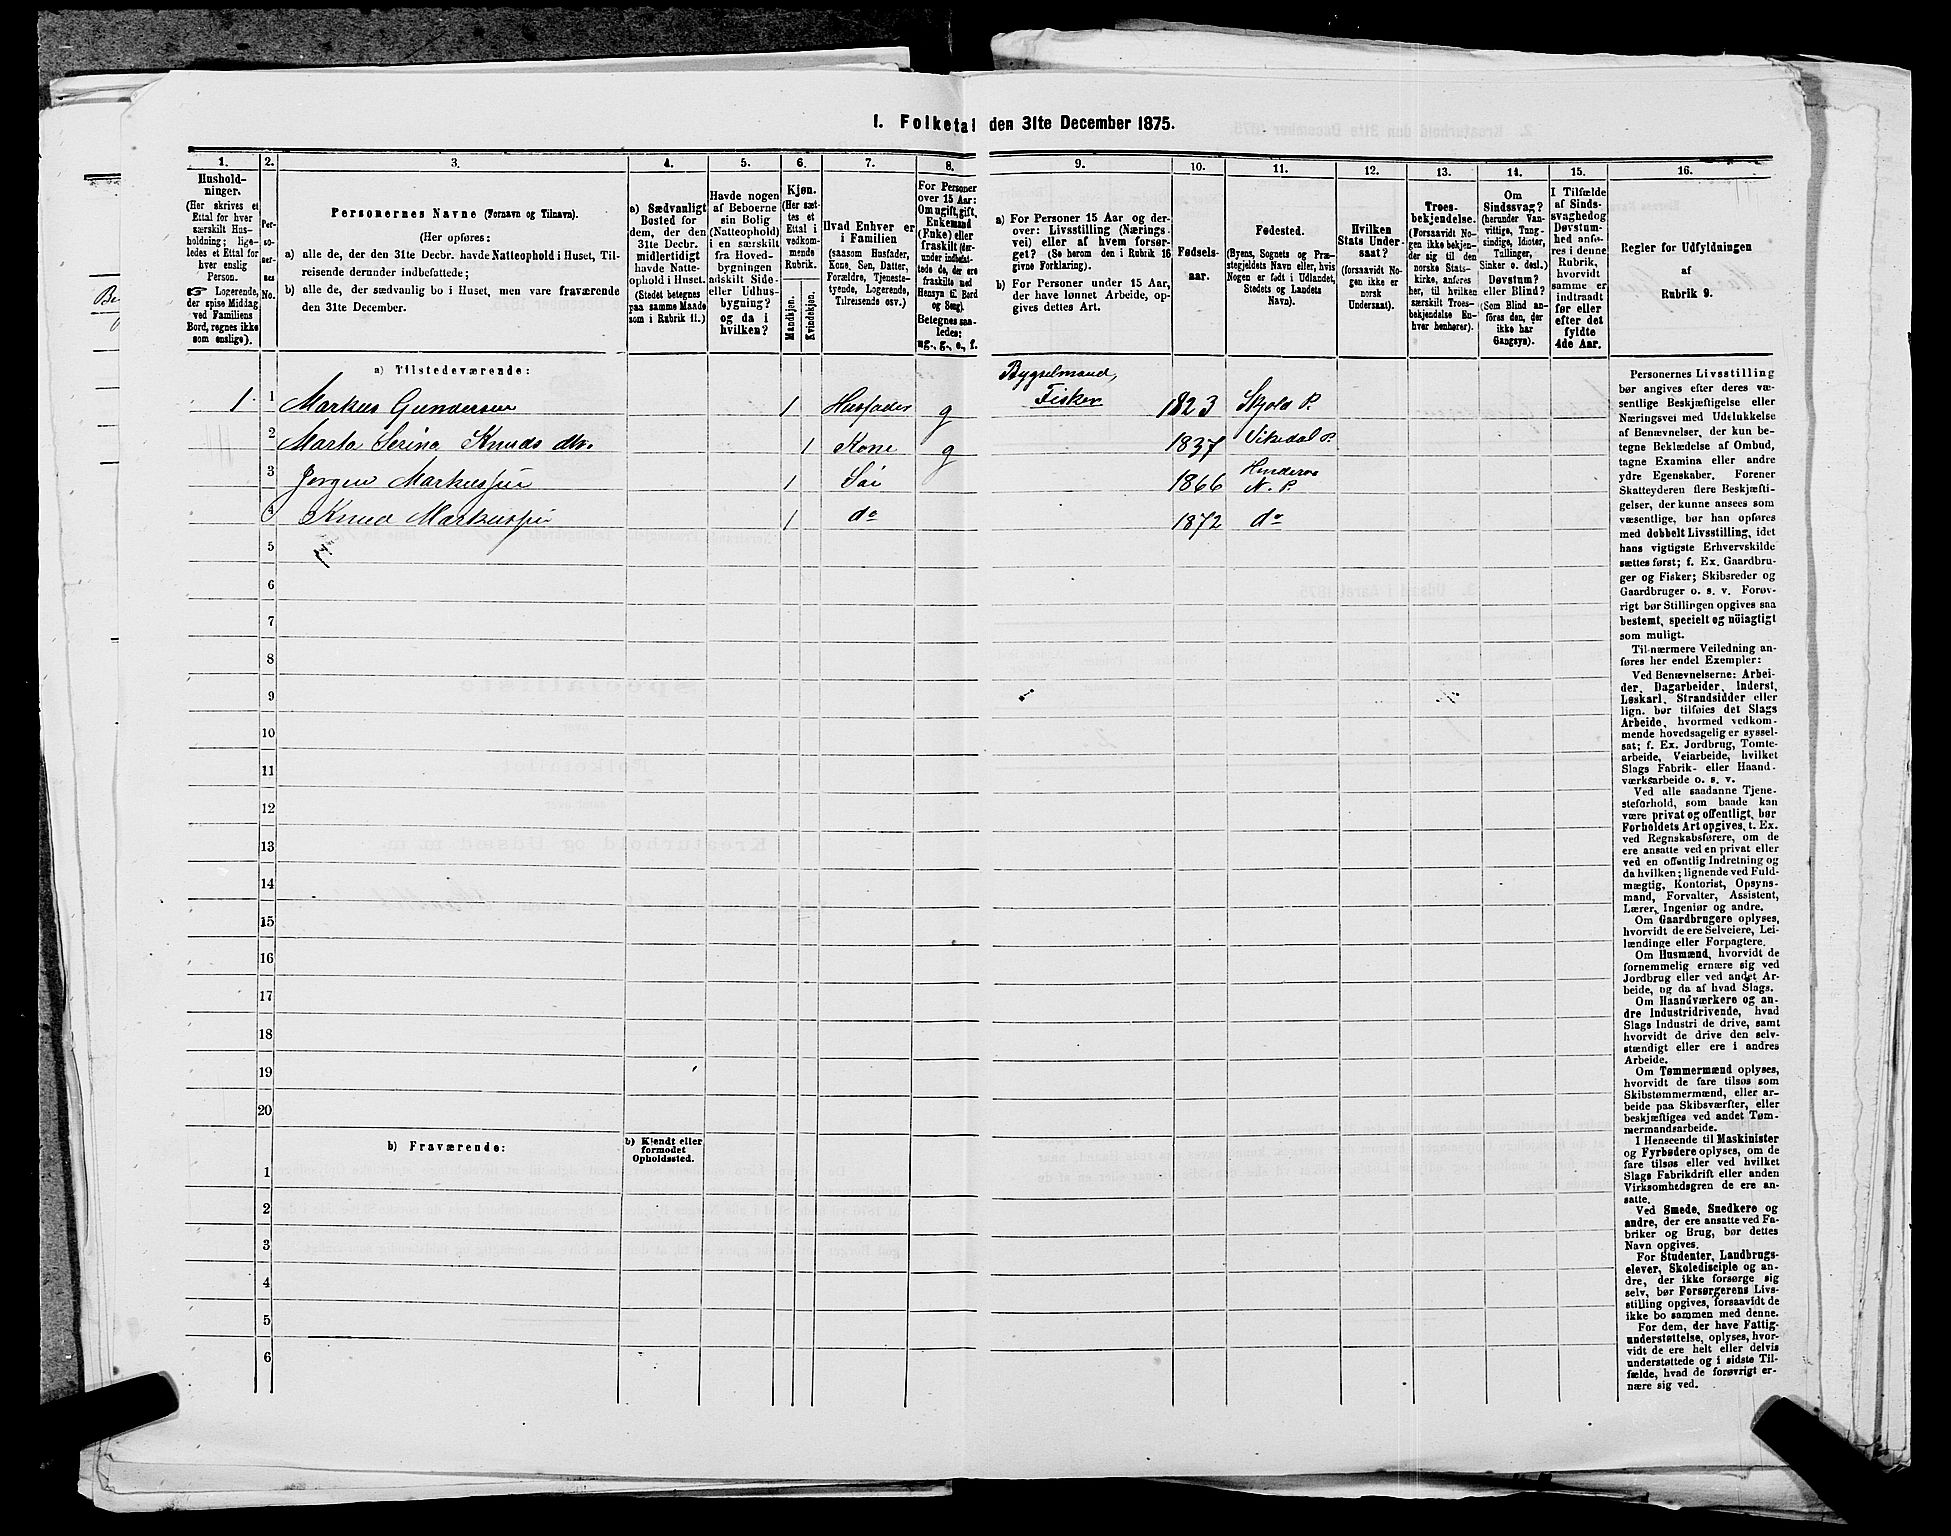 1. Folketal den 31te December 1875.
1.
Hushold-
ninger.
(Her skrives et
Ettal for hver
særskilt Hus-
holdning; lige-
ledes et Ettal for
hver enslig
Person.
Logerende,
der spise Middag
ved Familiens
Bord, regnes ikke
som enslige).
2.
Per-
so-
ner-
nes
No.
3.
Personernes Navne (Fornavn og Tilnavn).
(Her opføres:
a) alle de, der den 31te Decbr. havde Natteophold i Huset, Til-
reisende derunder indbefattede;
b) alle de, der sædvanlig bo i Huset, men vare fraværende
den 31te December.
4.
a) Sædvanligt
Bosted for
dem, der den
31te Decbr.
midlertidigt
havde Natte-
ophold i Huset.
(Stedet betegnes
paa samme Maade
som i Rubrik 11.)
5.
Havde nogen
af Beboerne
sin Bolig
(Natteophold)
i en særskilt
fra Hoved-
bygningen
adskilt Side-
eller Udhus-
bygning?
og da i
hvilken?
6.
Kjøn.
(Her sæt-
tes et
Ettal i
vedkom-
mende
Rubrik.
Mandkjøn.
Kvindekjøn.
7.
Hvad Enhver er
i Familien
(saasom Husfader,
Kone, Søn, Datter,
Forældre, Tjeneste-
tyende, Logerende,
Tilreisende osv.)
8.
For Personer
over 15 Aar:
Om ugift, gift,
Enkemand
(Enke) eller
fraskilt (der-
under indbefat-
tede de, der ere
fraskilte med
Hensyn til Bord
og Seng).
Betegnes saa-
ledes:
ug., g., e., f.
9.
a) For Personer 15 Aar og der-
over: Livsstilling (Nærings-
vei) eller af hvem forsør-
get? (Se herom den i Rubrik 16
givne Forklaring).
b) For Personer under 15 Aar,
der have lønnet Arbeide, op-
gives dettes Art.
10.
Fødsels-
aar.
11.
Fødested.
(Byens, Sognets og Præ-
stegjeldets Navn eller, hvis
Nogen er født i Udlandet,
Stedets og Landets
Navn).
12.
Hvilken
Stats Under-
saat?
(forsaavidt No-
gen ikke er
norsk
Undersaat).
13.
Troes-
bekjendelse.
(Forsaavidt No-
gen ikke bekjen-
der sig til den
norske Stats-
kirke, anføres
her, til hvilken
særskilt Troes-
bekjendelse En-
hver henhører).
14.
Om
Sindssvag?
(herunder Van-
vittige, Tung-
sindige, Idioter,
Tallinger,
Sinker o. desl.)
Døvstum?
eller Blind?
(Som Blind an-
føres den, der
ikke har
Gangsyn).
15.
I Tilfælde
af Sinds-
svaghed og
Døvstum-
hed anfø-
res i denne
Rubrik,
hvorvidt
samme er
indtraadt
før eller
efter det
fyldte
4de Aar.
16.
Regler for Udfyldningen
af
Rubrik 9.
a) Tilstedeværende:
1 1 Markus Gundersen 1 Husfader g Bygselmand, Fisker 1823 Skjold P.
2 Marta Serina Knuds dtr. 1 Kone g 1837 Vikedal P.
3 Jørgen Markussen 1 Søn 1866 N. P.
4 Knud Markussen 1 do 1872 do
5
6
7
8
9
10
11
12
13
14
15
16
17
18
19
20
b) Fraværende:
b) Kjendt eller
formodet
Opholdssted.
1
2
3
4
5
6
Personernes Livsstilling
bør angives efter deres væ-
sentlige Beskjæftigelse eller
Næringsvei med Udelukkelse
af Benævnelser, der kun be-
tegne Beklædelse af Ombud,
tagne Examina eller andre
ydre Egenskaber. Forener
Skatteyderen flere Beskjæfti-
gelser, der kunne ansees som
væsentlige, bør han opføres
med dobbelt Livsstilling, idet
hans vigtigste Erhvervskilde
sættes først; f. Ex. Gaardbru-
ger og Fisker; Skibsreder og
Gaardbruger o. s. v. Forøv-
rigt bør Stillingen opgives saa
bestemt, specielt og nöiagtigt
som muligt.
Til nærmere Veiledning an-
føres her endel Exempler:
Ved Benævnelserne: Arbei-
der, Dagarbeider, Inderst,
Løskarl, Strandsidder eller
lign. bør tilføies det Slags
Arbeide, hvormed vedkom-
mende hovedsagelig er syssel-
sat; f. Ex. Jordbrug, Tomte-
arbeide, Veiarbeide, hvilket
Slags Fabrik- eller Haand-
værksarbeide o. s. v.
Ved alle saadanne Tjene-
steforhold, som baade kan
være privat og offentligt, bør
Forholdets Art opgives, t. Ex.
ved Regnskabsførere, om de
ere ansatte ved en privat eller
ved en offentlig Indretning og
da hvilken; lignende ved Fuld-
mægtig, Kontorist, Opsyns-
mand, Forvalter, Assistent,
Lærer, Ingeniør og andre.
Om Gaardbrugere oplyses,
hvorvidt de ere Selveiere, Lei-
lændinge eller Forpagtere.
Om Husmænd, hvorvidt de
fornemmelig ernære sig ved
Jordbrug eller ved andet Ar-
beide, og da af hvad Slags.
Om Haandværkere og an-
dre Industridrivende, hvad
Slags Industri de drive, samt
hvorvidt de drive den selv-
stændigt eller ere i andres
Arbeide.
Om Tømmermænd oplyses,
hvorvidt de fare tilsøs som
Skibstømmermænd, eller ar-
beide paa Skibsværfter, eller
beskjæftiges ved andet Tøm-
mermandsarbeide.
I Henseende til Maskinister
og Fyrbødere oplyses, om de
fare tilsøs eller ved hvilket
Slags Fabrikdrift eller anden
Virksomhedsgren de ere an-
satte.
Ved Smede, Snedkere og
andre, der ere ansatte ved Fa-
briker og Brug, bør dettes
Navn opgives.
For Studenter, Landbrugs-
elever, Skoledisciple og an-
dre, der ikke forsørge sig
selv, bør Forsørgerens Livs-
stilling opgives, forsaavidt de
ikke bo sammen med denne.
For dem, der have Fattig-
understøttelse, oplyses, hvor-
vidt de ere helt eller delvis
understøttede og i sidste Til-
fælde, hvad de forøvrigt er-
nære sig ved.